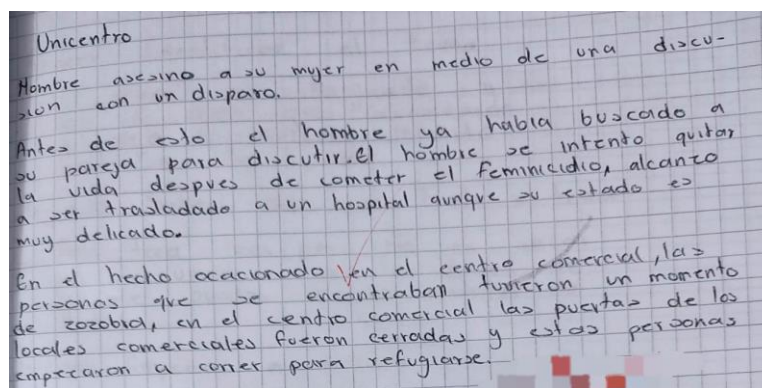 Unicentro
Hombre asesino a su mujer en medio de una discu-
sion con un disparo.
Antes de esto el hombre ya habia buscado a
su pareja para discutir. el hombre se intento quitar
la vida despues de cometer el feminicidio, alcanzo
a ser trasladado a un hospital aunque su estado es
muy delicado.
En el hecho ocacionado en el centro comercial, las
personas que se encontraban tuvieron un momento
de zozobra, en el centro comercial las puertas de los
locales comerciales fueron cerradas y estas personas
empezaron a correr para refugiarse.